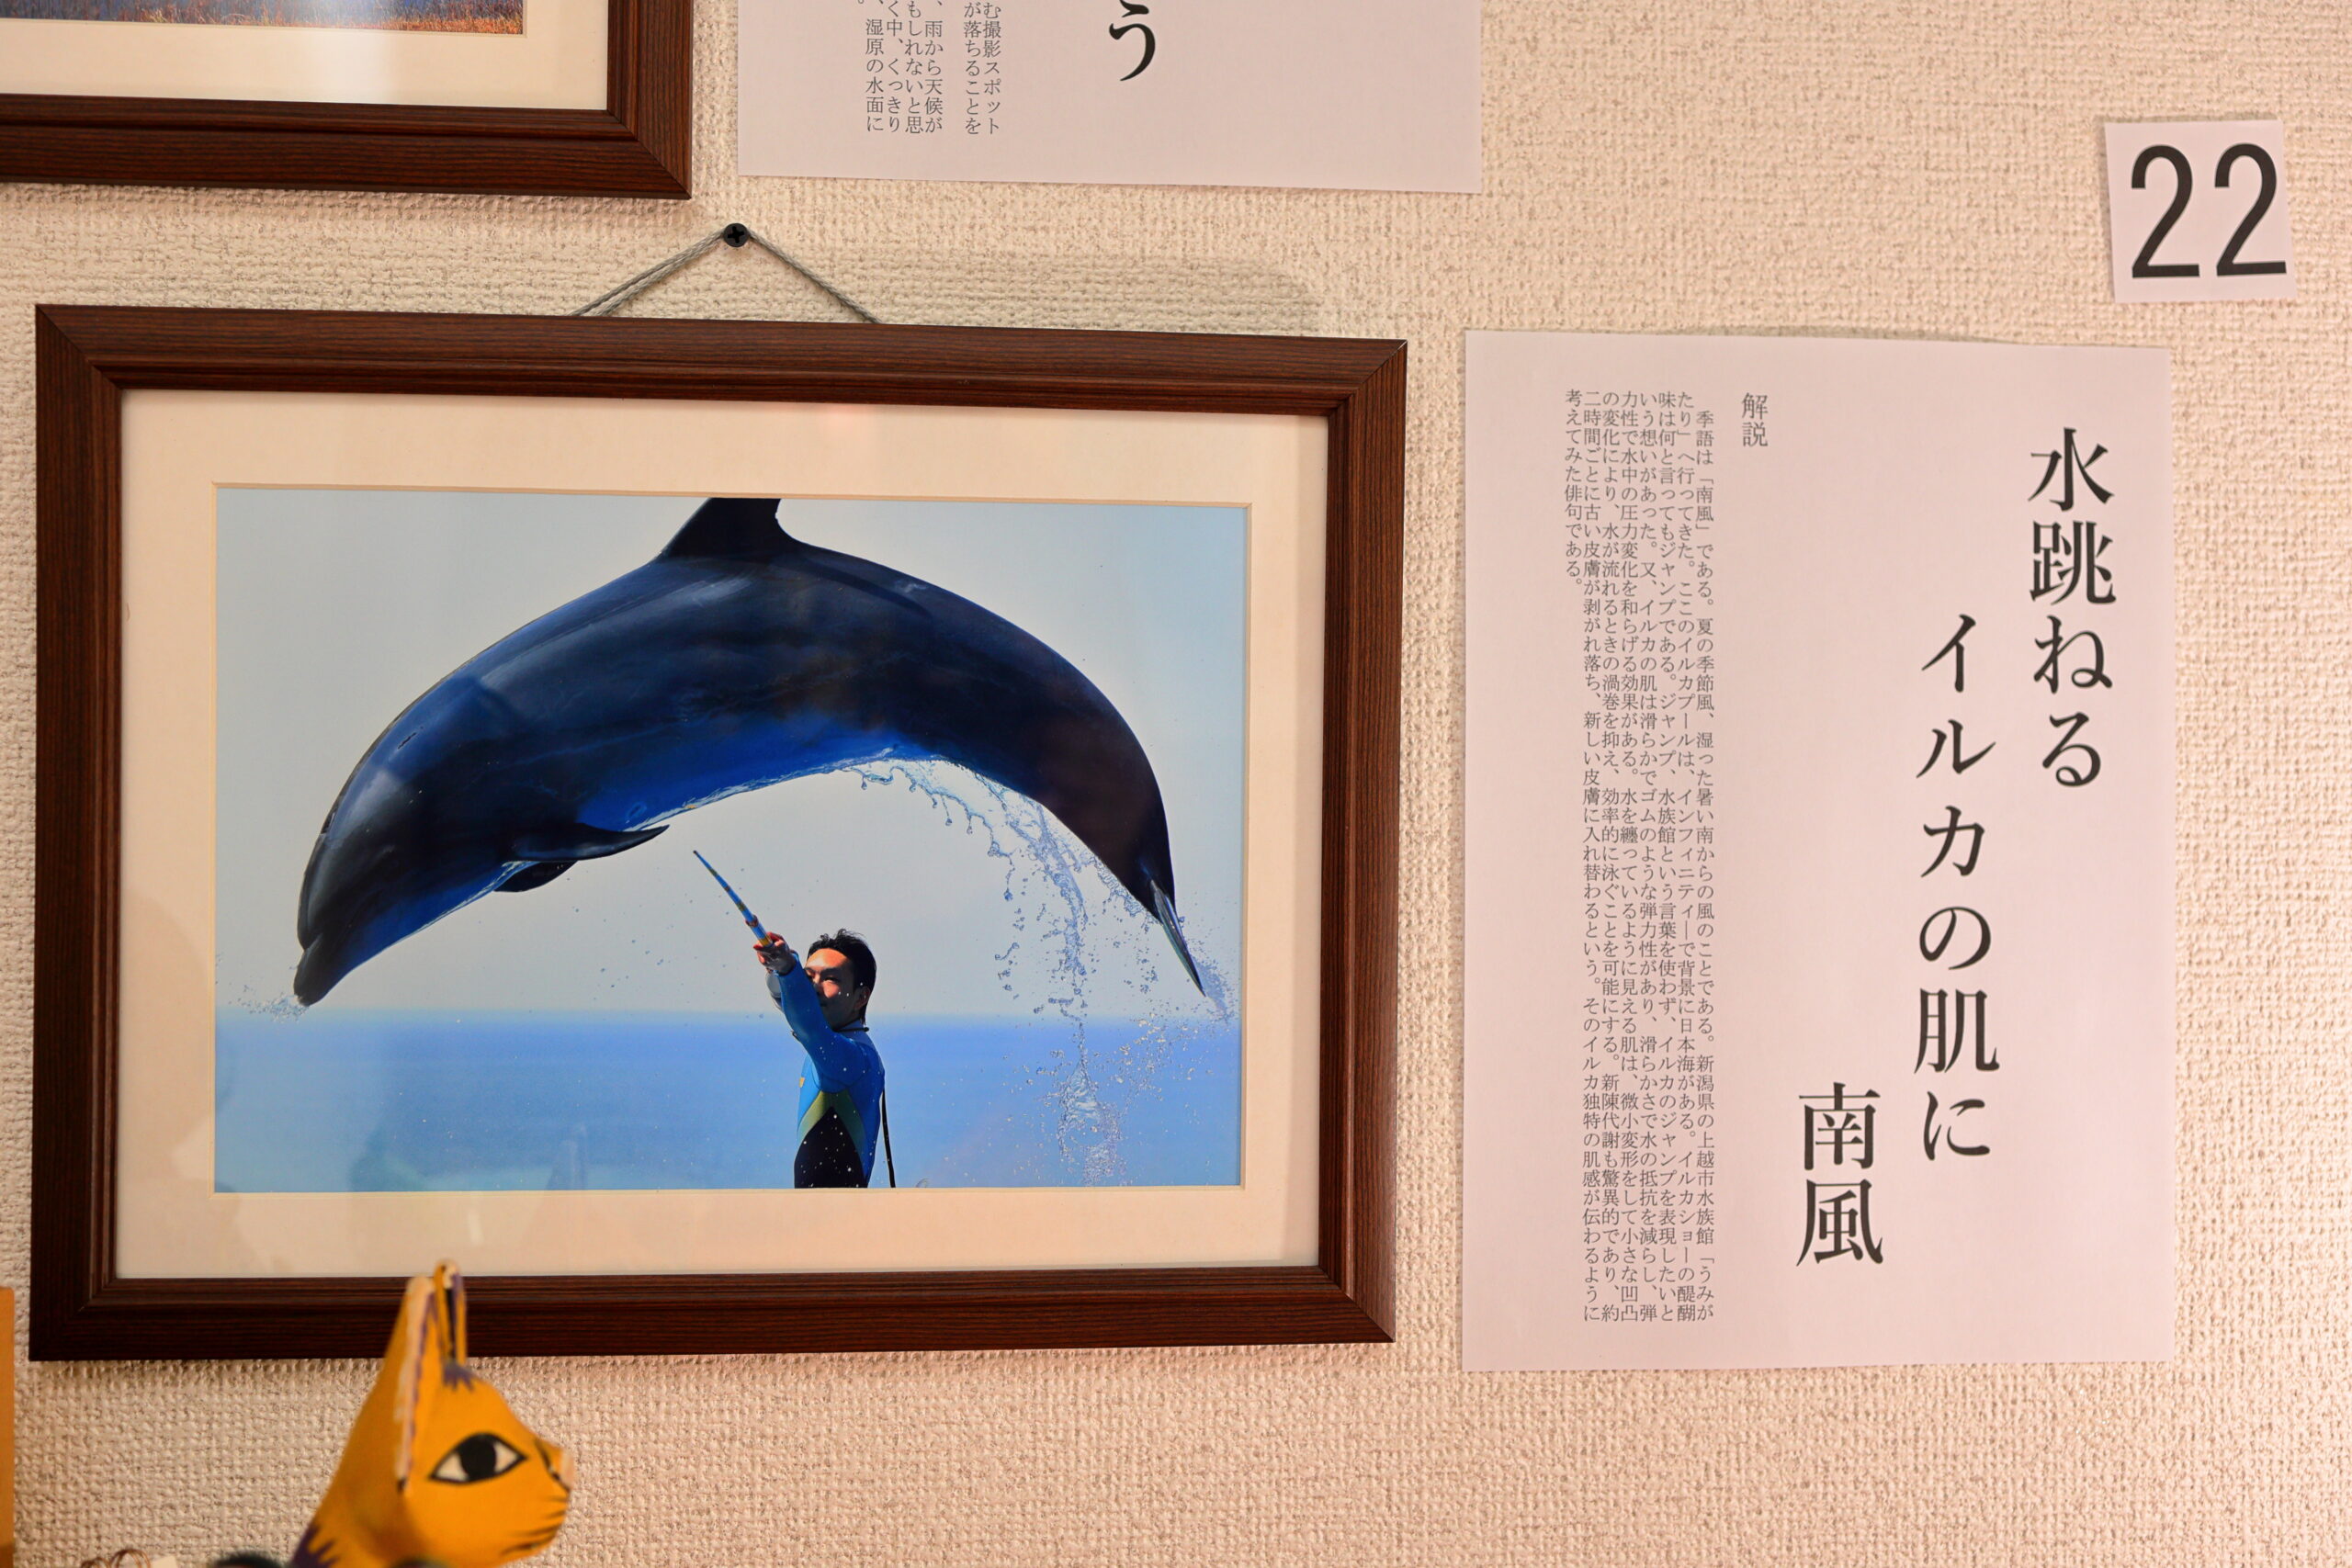 う
む撮影スポット
が落ちることを
、雨から天候が
もしれないと思
く中、くっきり
、湿原の水面に
。
22
水跳ねる
イルカの肌に
南風
解説
季語は「南風」である。夏の季節風、湿った暑い南からの風のことである。新潟県の上越市水族館「うみが
たり」へ行ってきた。ここのイルカプールは、インフィニティーで背景に日本海がある。イルカショーの醍醐
味は何と言ってもジャンプである。ジャンプ、水族館という言葉を使わず、イルカのジャンプを表現したいと
いう想いがあった。又、イルカの肌は滑らかでゴムのような弾力性があり、滑らかさで水の抵抗を減らし、弾
力性で水中の圧力変化を和らげる効果がある。水を纏っているように見える肌は、微小変形をして小さな凹凸
の変化により、水が流れるときの渦巻を抑え、効率的に泳ぐことを可能にする。新陳代謝も驚異的であり、約
二時間ごとに古い皮膚が剥がれ落ち、新しい皮膚に入れ替わるという。そのイルカ独特の肌感が伝わるように
考えてみた俳句である。